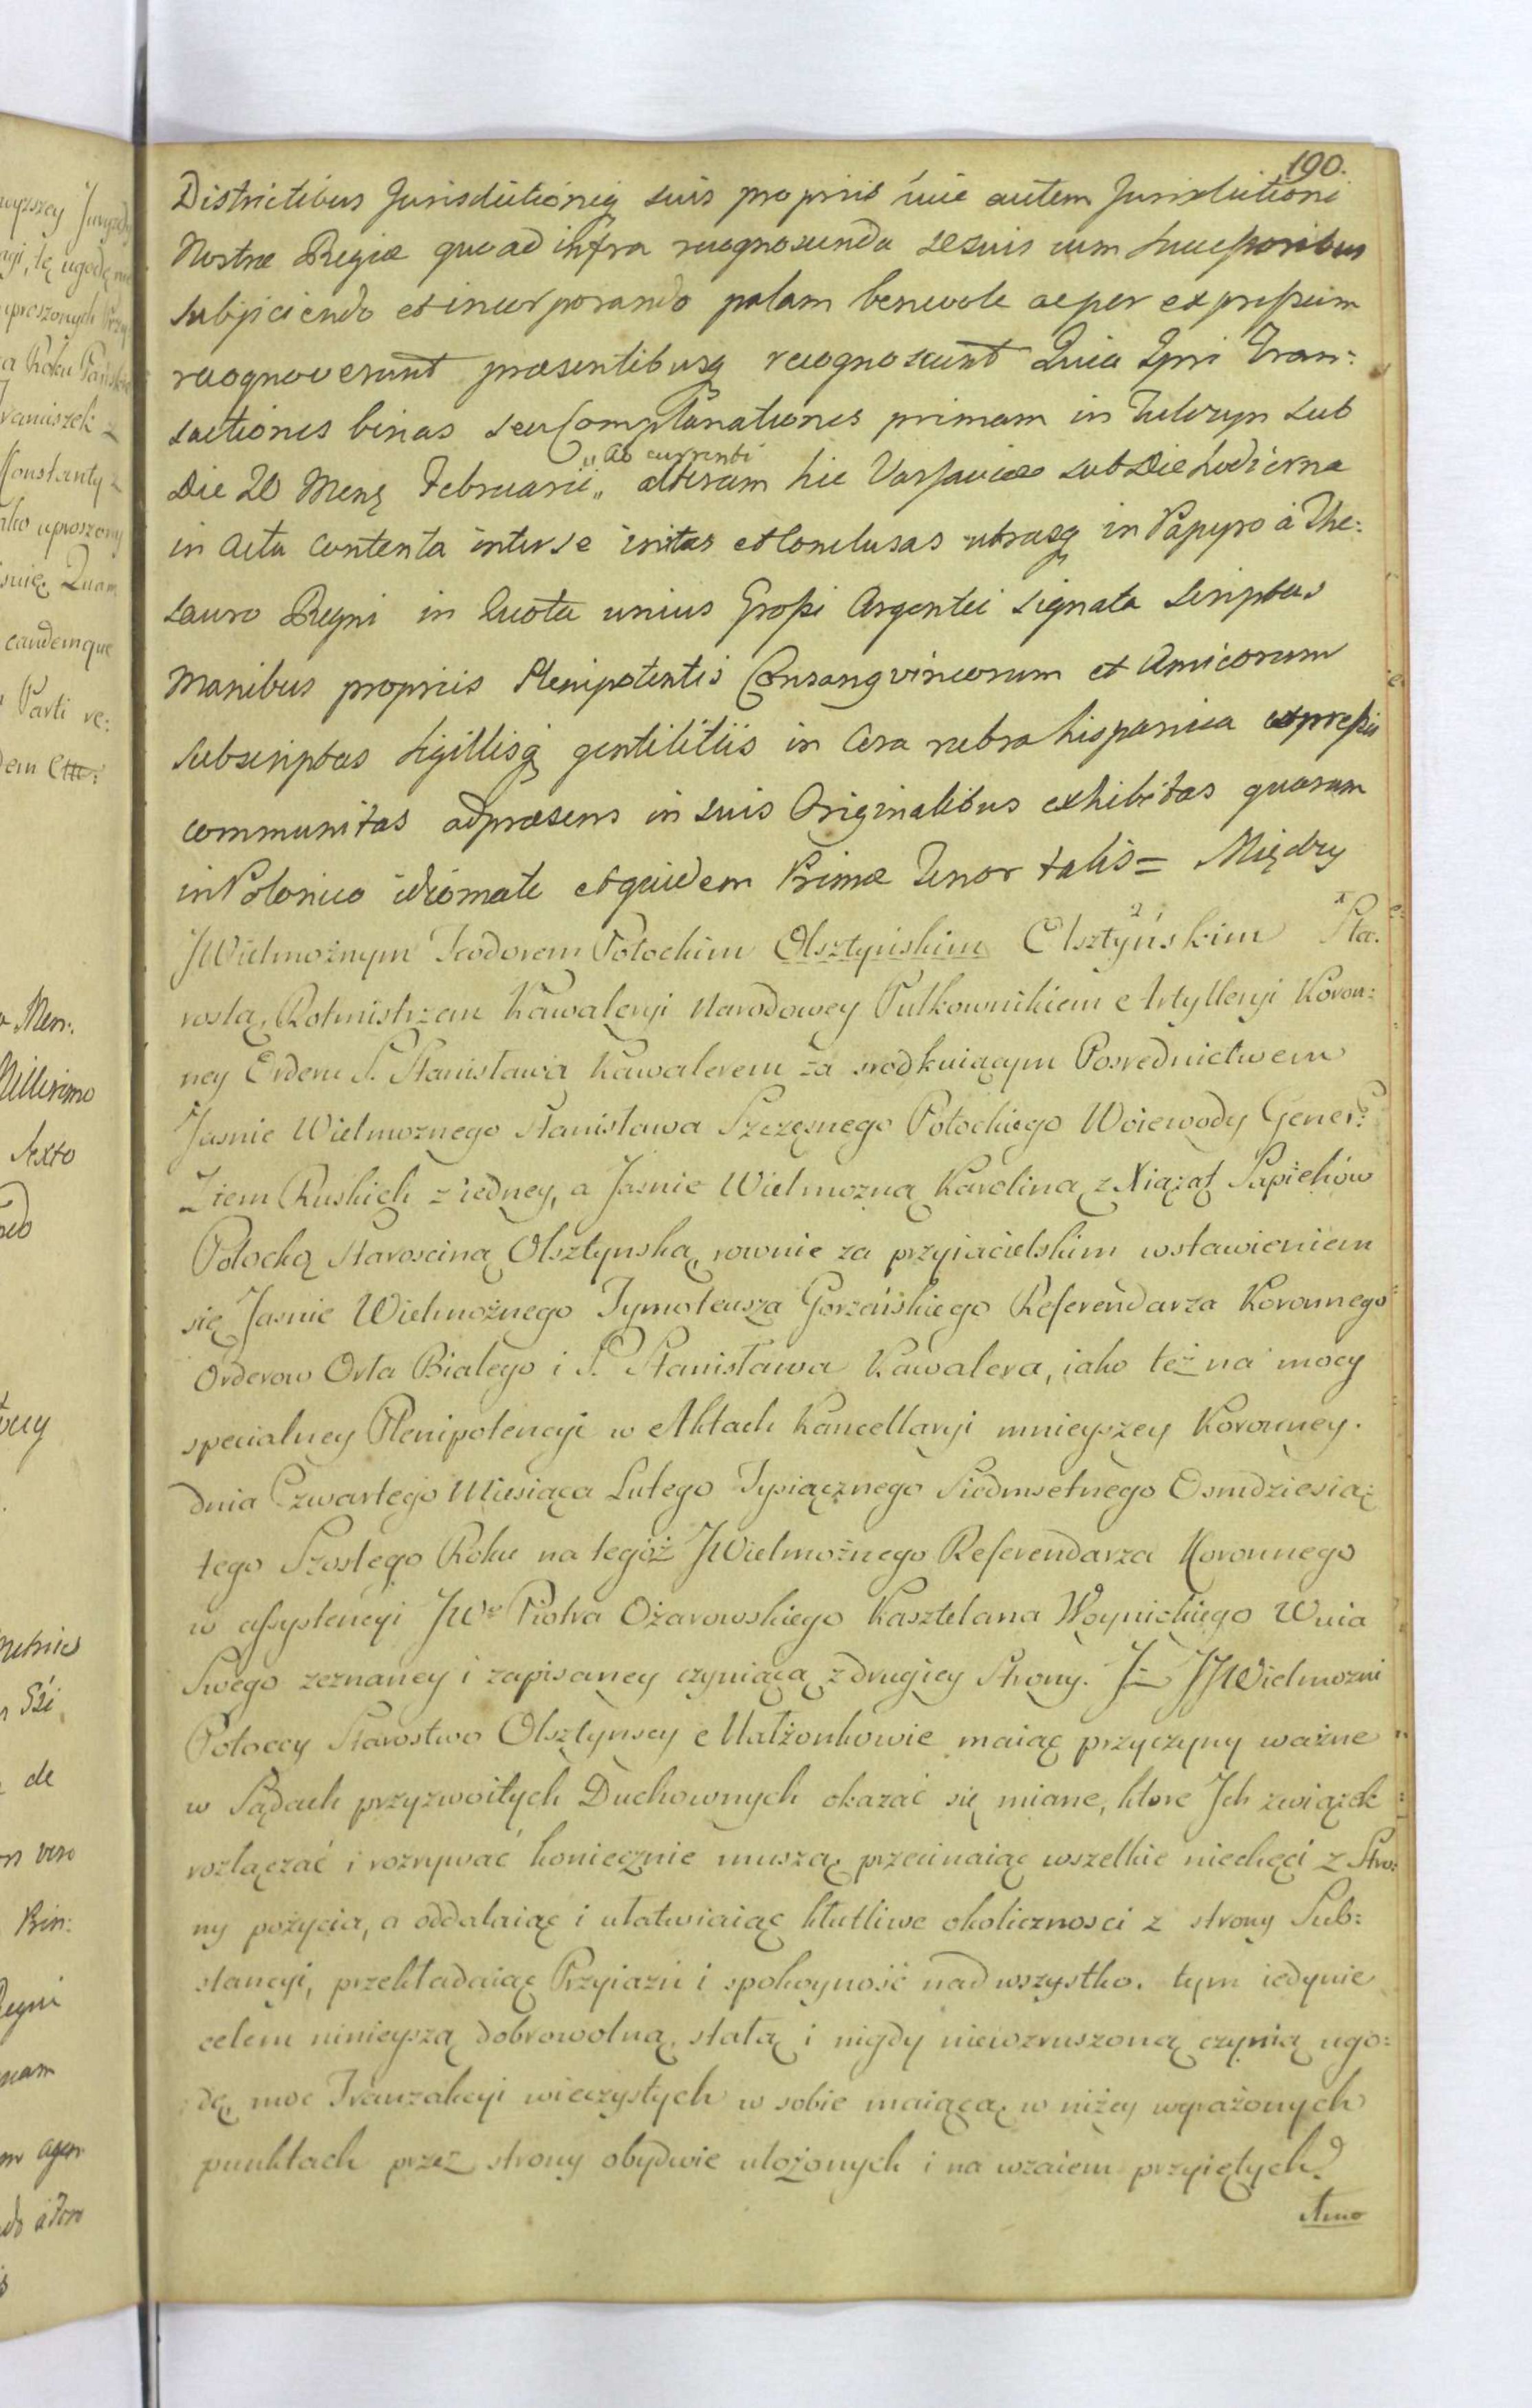 190.
Districtibus Jurisdictioniq suis propriis huic autem Jurisdictioni
Nostræ Regiæ quoad infra recognoscenda se suis cum Successoribus
subjiciendo et incorporando palam benevole ac per expressum
recognoverunt præsentibusq recognoscunt Quia Ipsi Tran:
sactiones binas seu Complanationes primam in Tulczyn sub
Die 20 Mens Februarii „ alteram hic Varsaviæ sub Die hodierna
„ ao currenti
in Actu contenta inter se initas et conclusas utrasq in Papyro à The:
sauro Regni in quota unius Grossi Argentei signata scriptas
Manibus propriis Plenipotentis Consangvineorum et Amicorum
subscriptas sigillisq gentilitiis in Cera rubra hispanica expressis
communitas adpræsens in suis Originalibus exhibitas quarum
in Polonico idiomate et quidem Primæ Tenor talis = Między
JWielmożnym Teodorem Potockim Olsztyńskim Olsztyńskim Sta.
2 1
rostą, Rotmistrzem Kawaleryi Narodowey Pułkownikiem Artylleryi Koron:
ney Orderu S. Stanisława Kawalerem za srodkuiącym Posrednictwem
Jasnie Wielmoznego Stanisława Szczęsnego Potockiego Woiewody Gener:
Ziem Ruskich z iedney, a Jasnie Wielmozną Karoliną z Xiąząt Sapiehów
Potocką Staroscina Olsztynską, rownie za przyiacielskim wstawieniem
się Jasnie Wielmożnego Tymoteusza Gorzeńskiego Referendarza Koronnego
Orderow Orła Białego i S. Stanisława Kawalera, iako też na mocy
specialney Plenipotencyi w Aktach Kancellaryi mnieyszey Koronney.
dnia Czwartego Miesiąca Lutego Tysiącznego Siedmsetnego Osmdziesią:
tego Szostego Roku na tegoż JWielmożnego Referendarza Koronnego
w assystencyi JWo Piotra Ożarowskiego Kasztelana Woynickiego Wuia
Swego zeznaney i zapisaney czyniącą z drugiey Strony. Iż JJWielmozni
Potoccy Starostwo Olsztynscy Małżonkowie maiąc przyczyny ważne
w Sądach przyzwoitych Duchownych okazać się miane, ktore Ich związek
rozłączać i rozrywać koniecznie muszą przecinaiąc wszelkie niechęci z Stro:
ny pożycia, a oddalaiąc i ułatwiaiąc kłutliwe okolicznosci z strony Sub:
stancyi, przekładaiąc Przyiazń i spokoyność nad wszystko. tym iedynie
celem ninieyszą dobrowolną, stałą i nigdy niewzruszoną czynią ugo:
dę, moc Tranzakcyi wieczystych w sobie maiącą w niżey wyrażonych
punktach przez strony obydwie ułożonych i na wzaiem przyiętych.
Amo